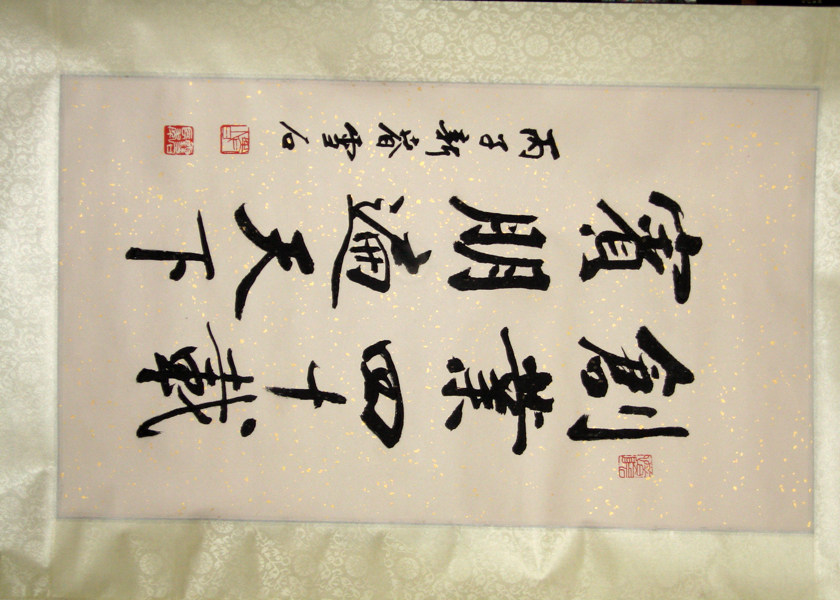 創業四十載
賓朋遍天下
丙子新春雪石